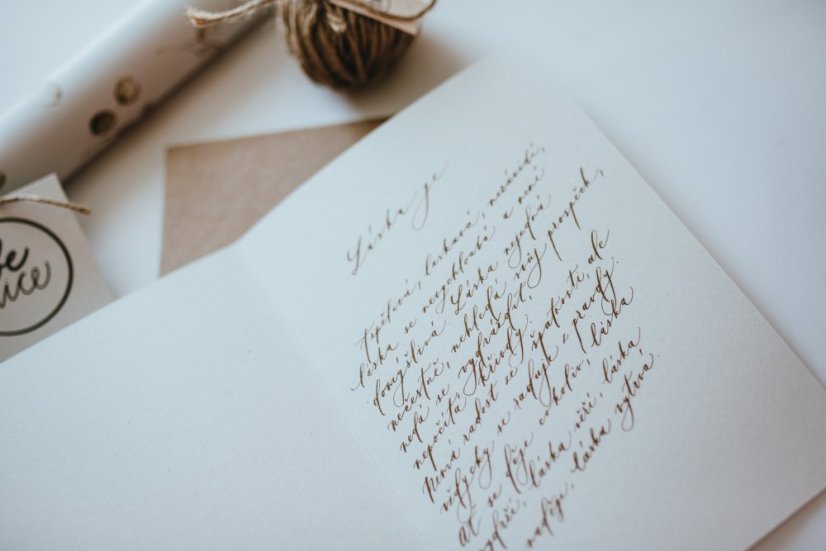 Láska je
trpělivá, laskavá, nezávidí,
láska se nevychloubá a není
domýšlivá. Láska nejedná
nečestně, nehledá svůj prospěch,
nedá se vydráždit,
nepočítá křivdy.
Nemá radost ze špatnosti, ale
vždycky se raduje z pravdy.
Ať se děje cokoliv, láska
vydrží, láska věří, láska
láska vytrvá.